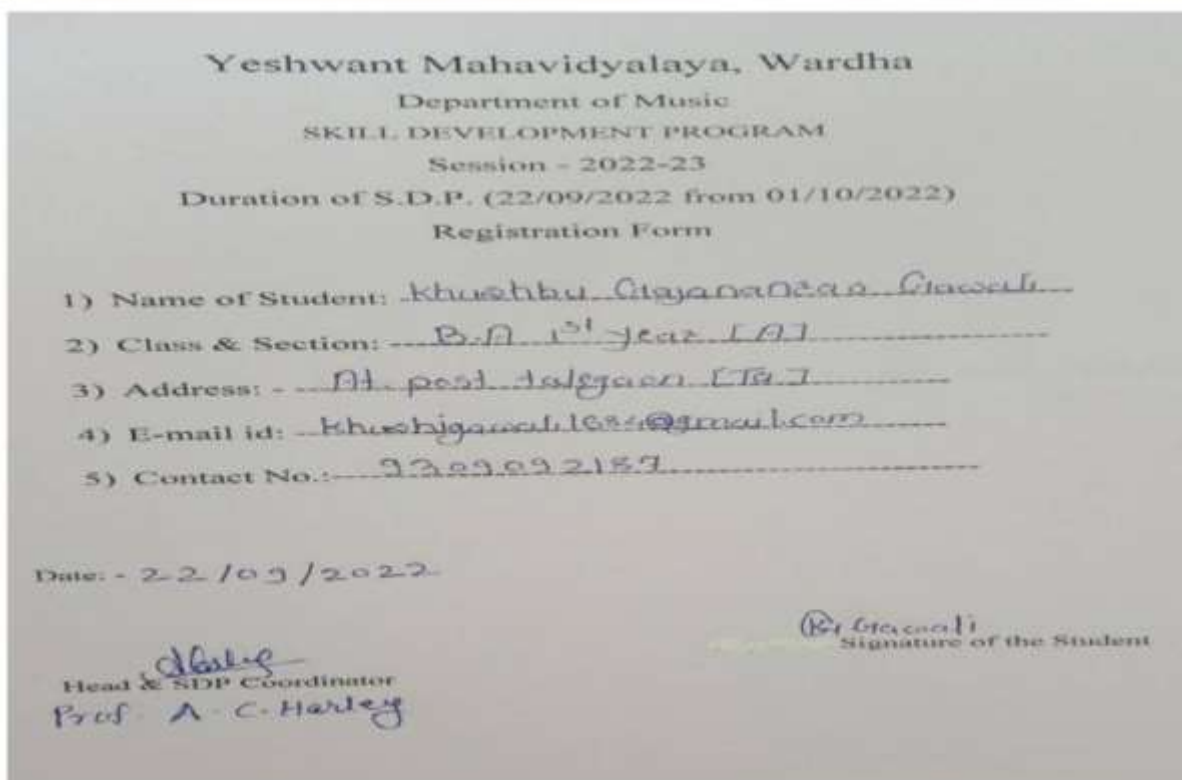 Yeshwant Mahavidyalaya, Wardha
Department of Music
SKILL DEVELOPMENT PROGRAM
Session - 2022-23
Duration of S.D.P. (22/09/2022 from 01/10/2022)
Registration Form
1) Name of Student: Khushbu Gajananrao Gawali
2) Class & Section: B.A 1st year [A]
3) Address: - At. post talegaon [Ta.]
4) E-mail id: khushigawali1684@gmail.com
5) Contact No.: 9309092187
Date: - 22/09/2022
K. Gawali
Signature of the Student
Head & SDP Coordinator
Prof. A. C. Harley